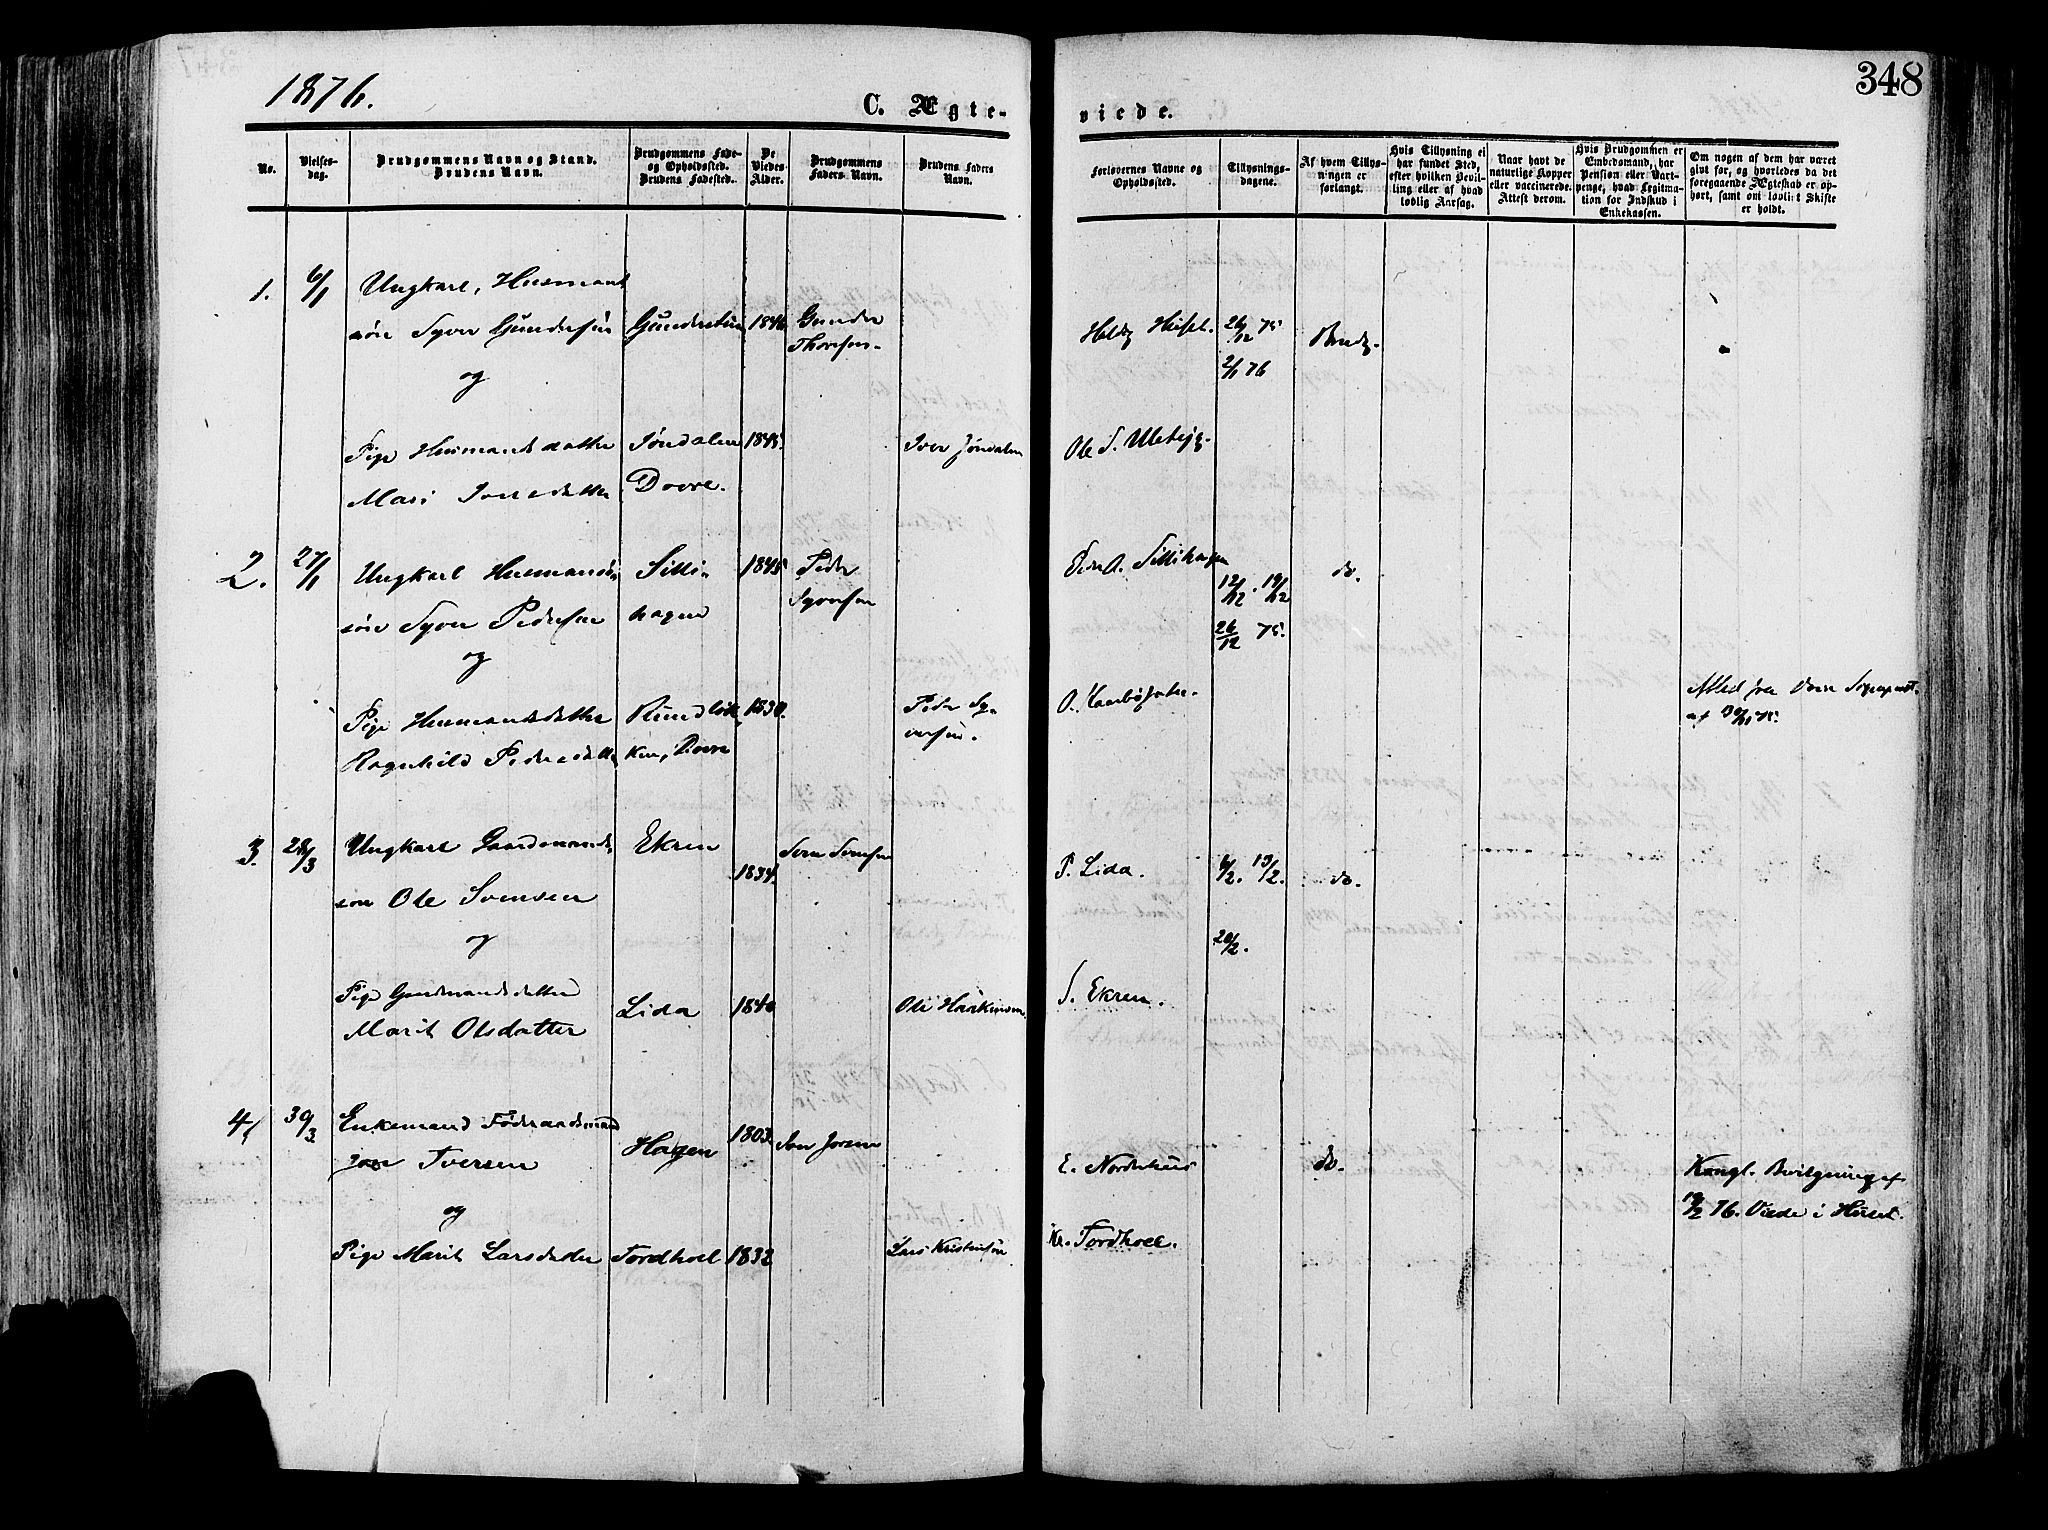 1876.
C. Ægte-
viede.
348
No.
Vielses-
dag.
Brudgommens Navn og Stand.
Brudens Navn.
Brudgommens Føde-
og Opholdssted.
Brudens Fødested.
De
Viedes
Alder.
Brudgommens
Faders Navn.
Brudens Faders
Navn.
Forlovernes Navne og
Opholdssted.
Tillysnings-
dagene.
Af hvem Tillys-
ningen er
forlangt.
Hvis Tillysning ei
har fundet Sted,
efter hvilken Bevil-
ling eller af hvad
lovlig Aarsag.
Naar havt de
naturlige Kopper
eller vaccinerede.
Attest derom.
Hvis Brudgommen er
Embedsmand, har
Pension eller Vart-
penge, hvad Legitima-
tion for Indskud i
Enkekassen.
Om nogen af dem har været
gift før, og hvorledes da det
foregaaende Ægteskab er op-
hørt, samt om lovligt Skifte
er holdt.
1. 6/1 Ungkarl, Husmands
søn Syver Gundersen Gunderstuen 1846 Gunder
Thoresen
26/12 75
2/1 76
og
Pige Husmandsdatter Jøndalen 1845. Iver Jøndalen Ole S.
Mari Iversdatter Dovre.
2. 27/1 Ungkarl Husmands- Silli- 1845 Peder
søn Syver Pedersen hagen Syversen
Sillihagen 12/12. 19/12 do.
26/12 75.
og
Pige Husmandsdatter 1830. Peder Sy-
Ragnhild Pedersdatter ken, Dovre versen.
O.
af 30/11 75.
3. 28/3 Ungkarl Gaardmands- Ekren 1834. Sven Svensen
søn Ole Svensen
P. Lida. 6/2. 13/2. do.
og 20/2.
Pige Gaardmandsdatter
Marit Olsdatter Lida 1840 Ole Haakensen S. Ekren.
4. 30/3 Enkemand Føderaadsmand
Iversen Hagen 1803
E. Nordehuus do. Kongl. Bevilgning af
19/2 76. Viede i Huset.
og
Pige Marit Larsdatter Tordhoel 1832 Lars Kristensen
K. Tordhoel.